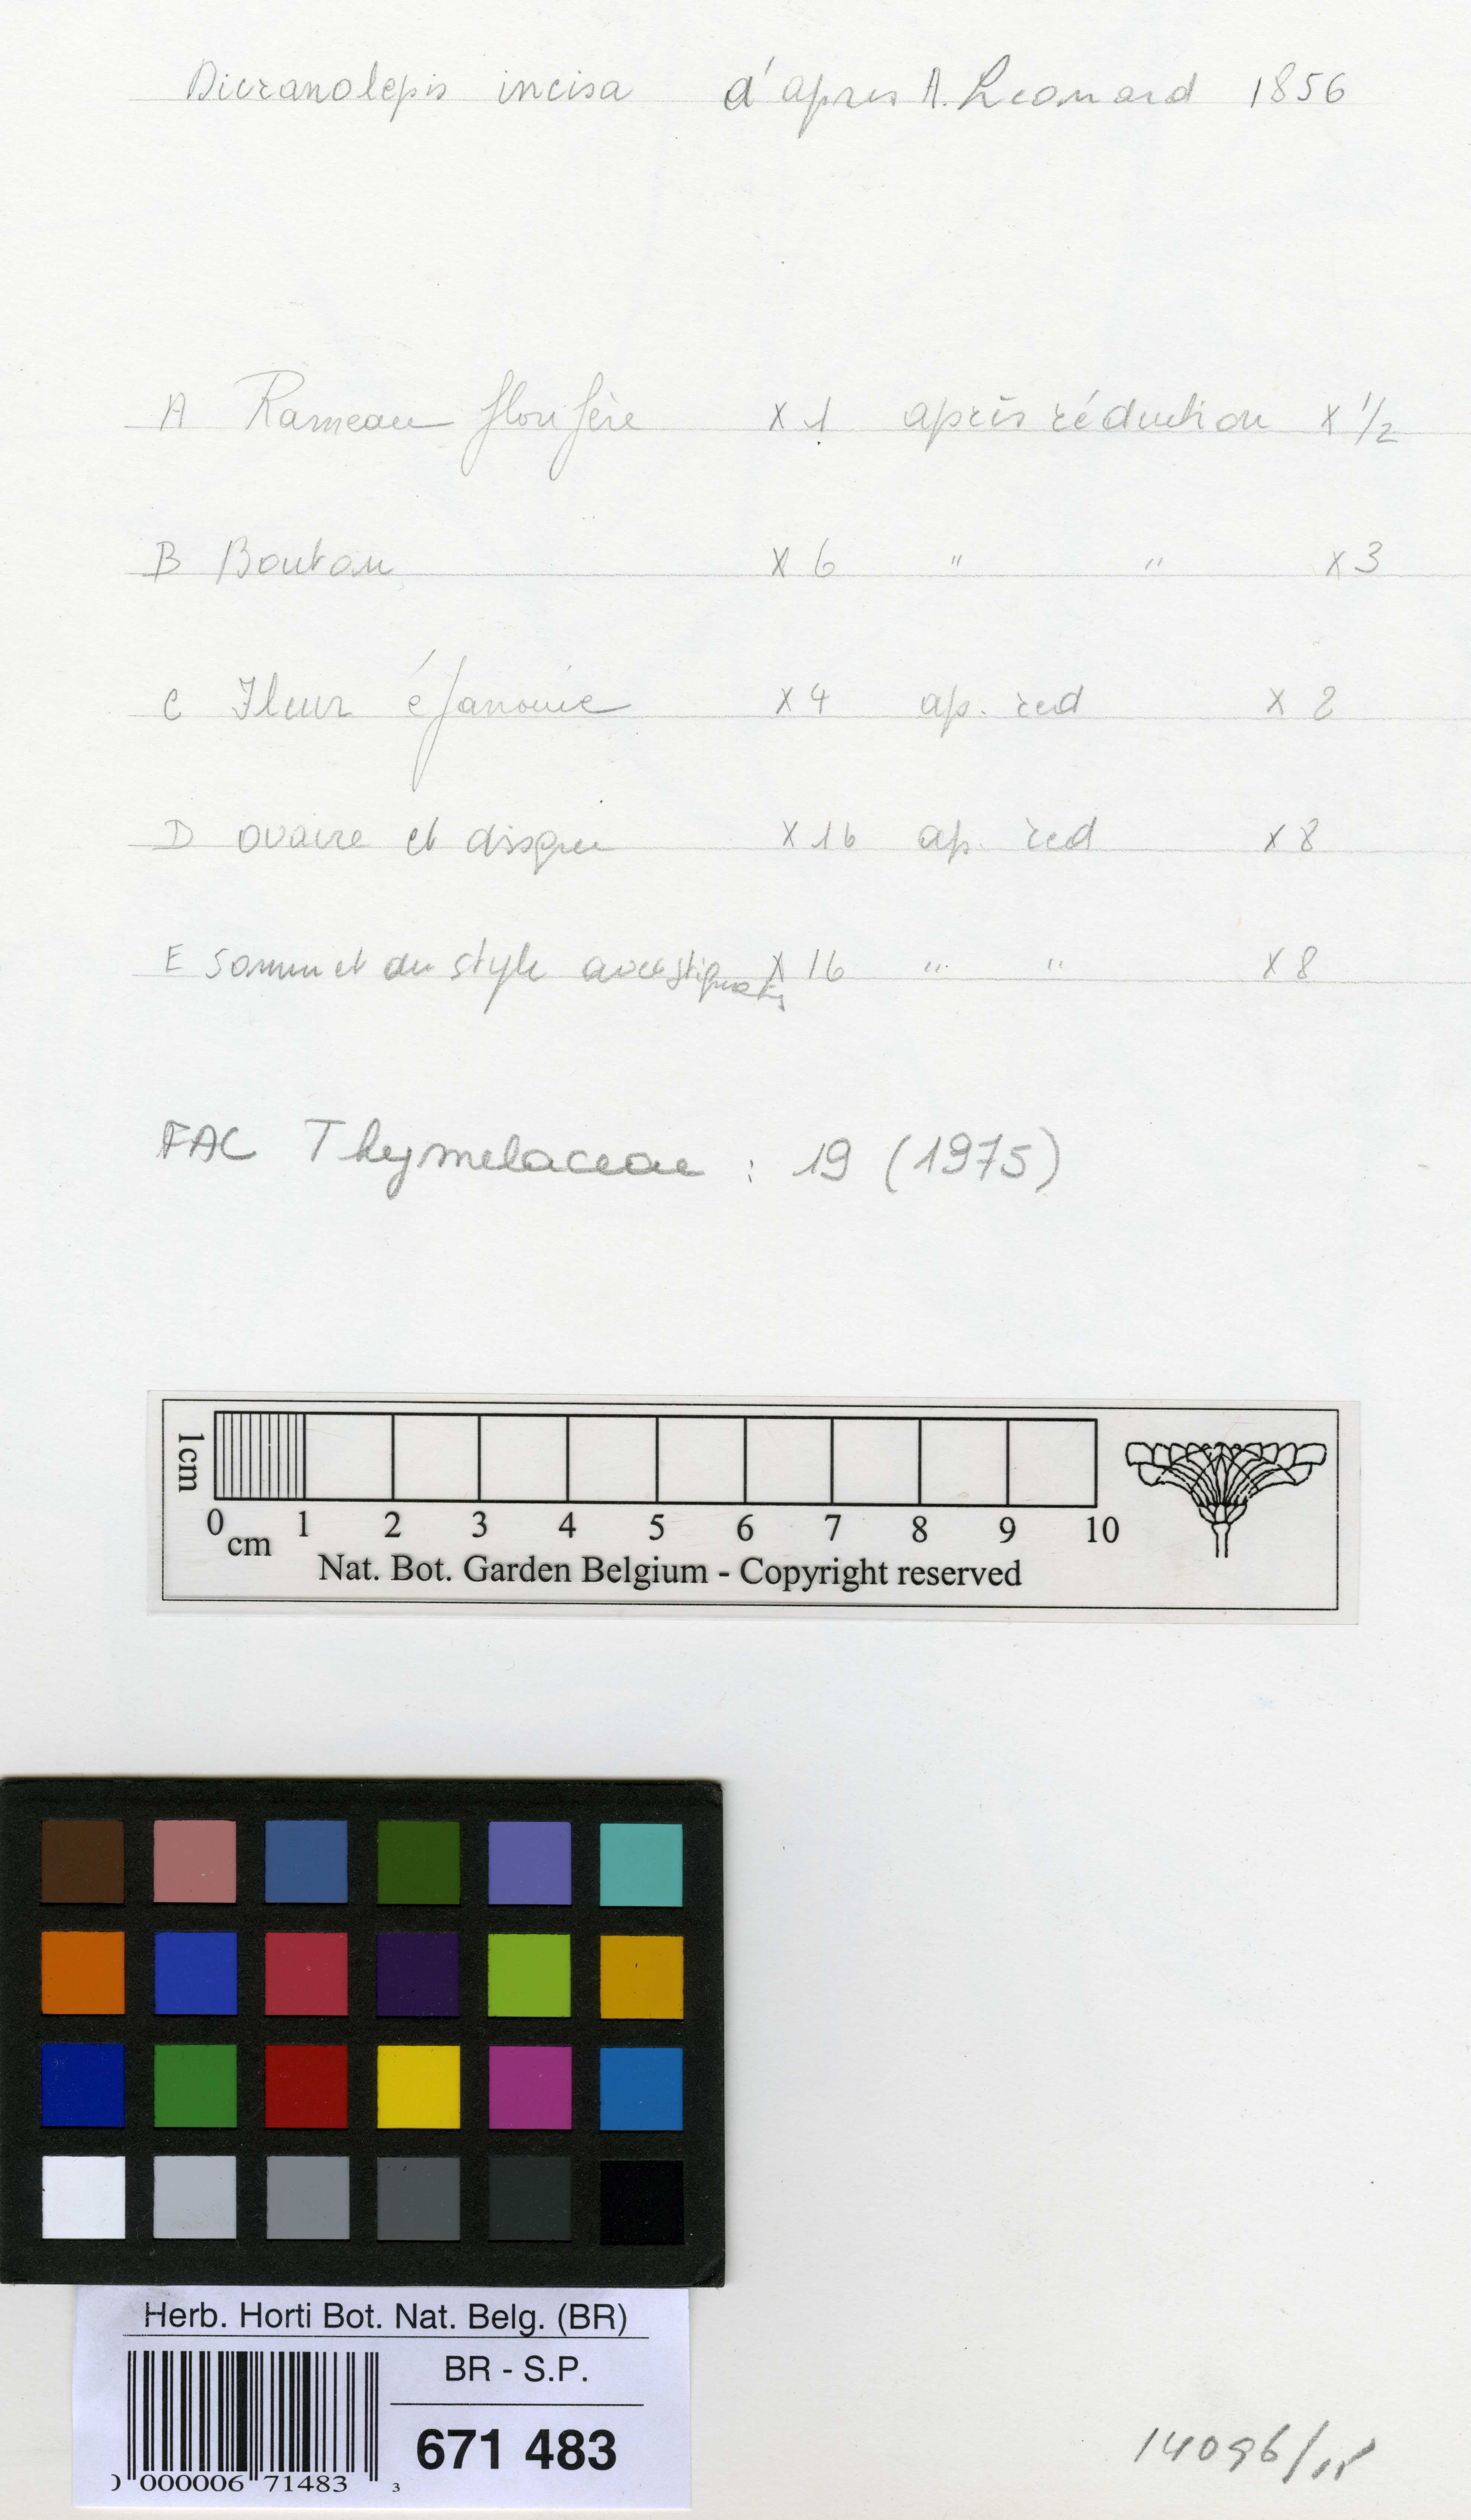 Dicranolepis incisa d'apres A. Leonard 1856
A Rameau florifère x 1 après réduction x 1/2
B Bouton x 6 " " x 3
C Fleur épanouie x 4 ap. red x 2
D ovaire et disque x 16 ap. red x 8
E Sommet du style avec stigmates x 16 " " x 8
FAC Thymelaceae : 19 (1975)
1cm
0 1 2 3 4 5 6 7 8 9 10
cm
Nat. Bot. Garden Belgium - Copyright reserved
Herb. Horti Bot. Nat. Belg. (BR)
BR - S.P.
671 483
000006 71483 3
14096/